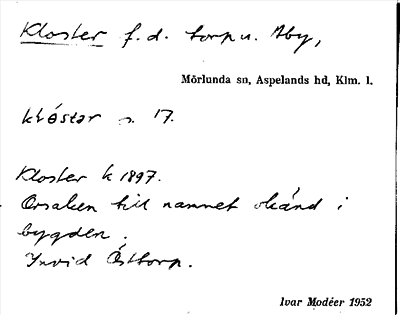 Kloster f. d. torp u. Åby,
Mörlunda sn, Aspelands hd, Klm. l.
klóstər n. 17.
Kloster k 1897.
Orsaken till namnet okänd i
bygden.
Invid Östtorp.
Ivar Modéer 1952